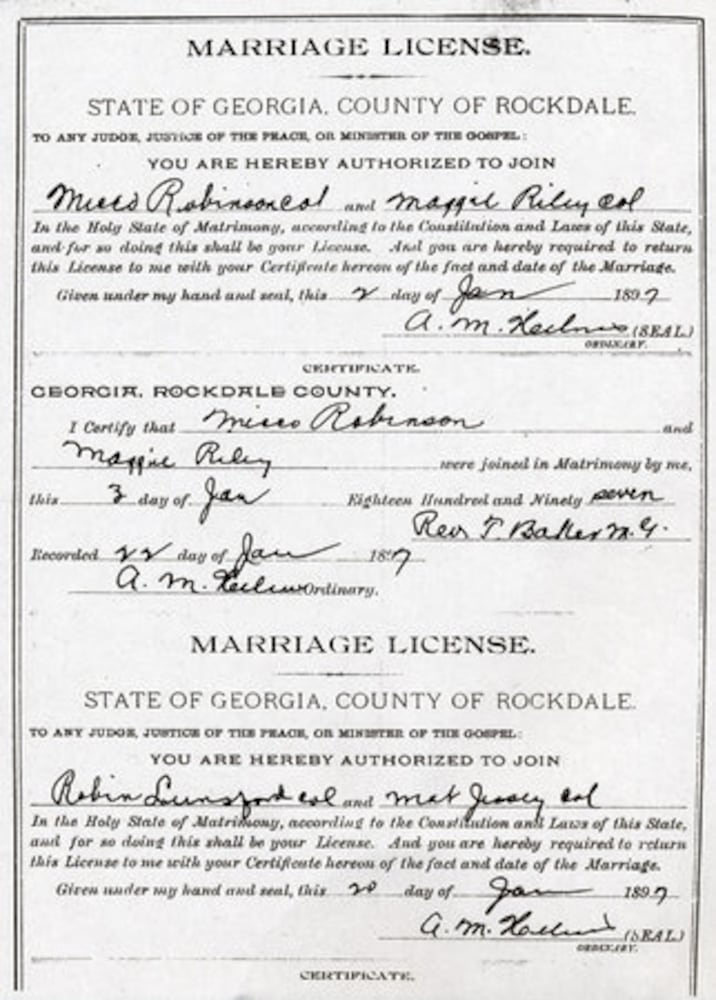 MARRIAGE LICENSE.
STATE OF GEORGIA, COUNTY OF ROCKDALE.
TO ANY JUDGE, JUSTICE OF THE PEACE, OR MINISTER OF THE GOSPEL:
YOU ARE HEREBY AUTHORIZED TO JOIN
Robinson col and Maggie Riley col
In the Holy State of Matrimony, according to the Constitution and Laws of this State,
and for so doing this shall be your License. And you are hereby required to return
this License to me with your Certificate hereon of the fact and date of the Marriage.
Given under my hand and seal, this 2 day of Jan 1897
A. M. (SEAL.)
ORDINARY.
CERTIFICATE.
GEORGIA, ROCKDALE COUNTY.
I Certify that Robinson and
Maggie Riley were joined in Matrimony by me,
this 3 day of Jan Eighteen Hundred and Ninety seven
Rev T. Baker M. G.
Recorded 22 day of Jan 1897
A. M. Ordinary.
MARRIAGE LICENSE.
STATE OF GEORGIA, COUNTY OF ROCKDALE.
TO ANY JUDGE, JUSTICE OF THE PEACE, OR MINISTER OF THE GOSPEL:
YOU ARE HEREBY AUTHORIZED TO JOIN
Robin Lunsford col and Mat Jossey col
In the Holy State of Matrimony, according to the Constitution and Laws of this State,
and for so doing this shall be your License. And you are hereby required to return
this License to me with your Certificate hereon of the fact and date of the Marriage.
Given under my hand and seal, this 20 day of Jan 1897
A. M. (SEAL.)
ORDINARY.
CERTIFICATE.